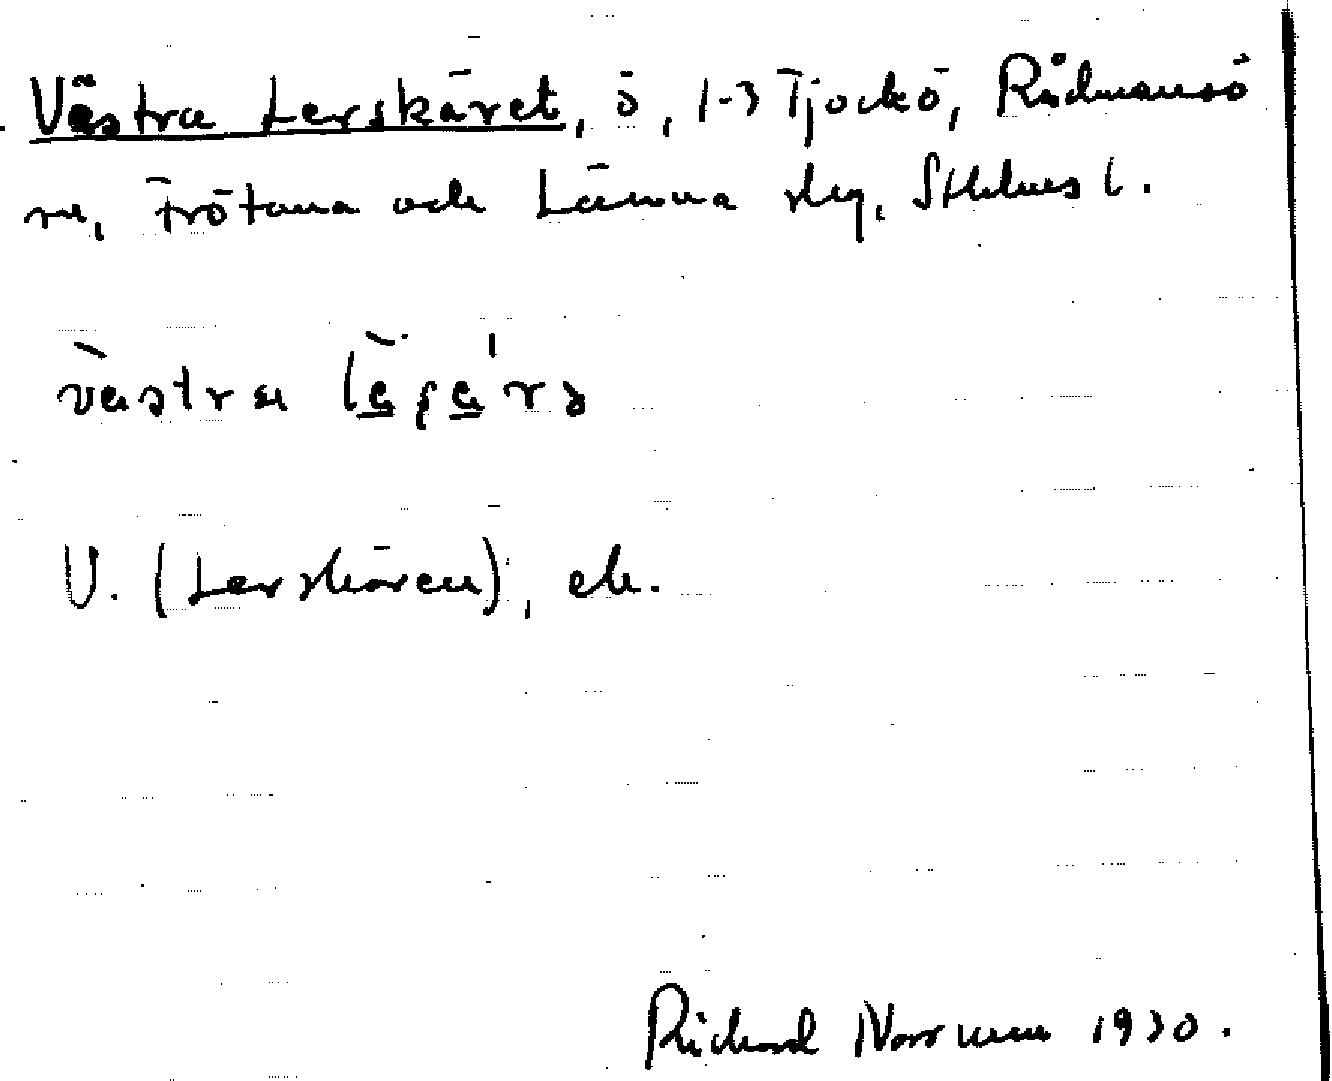 Västra Lerskäret, ö, 1-3 Tjockö, Rådmansö
sn, Frötuna och Länna slg, Sthlms l.
västra
U. (Lerskären), ek.
Richard Norrman 1930.